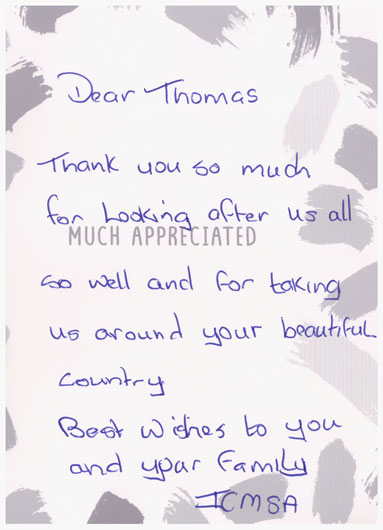 Dear Thomas
Thank you so much
for Looking after us all
MUCH APPRECIATED
so well and for taking
us around your beautiful
country
Best Wishes to you
and your Family
ICMSA